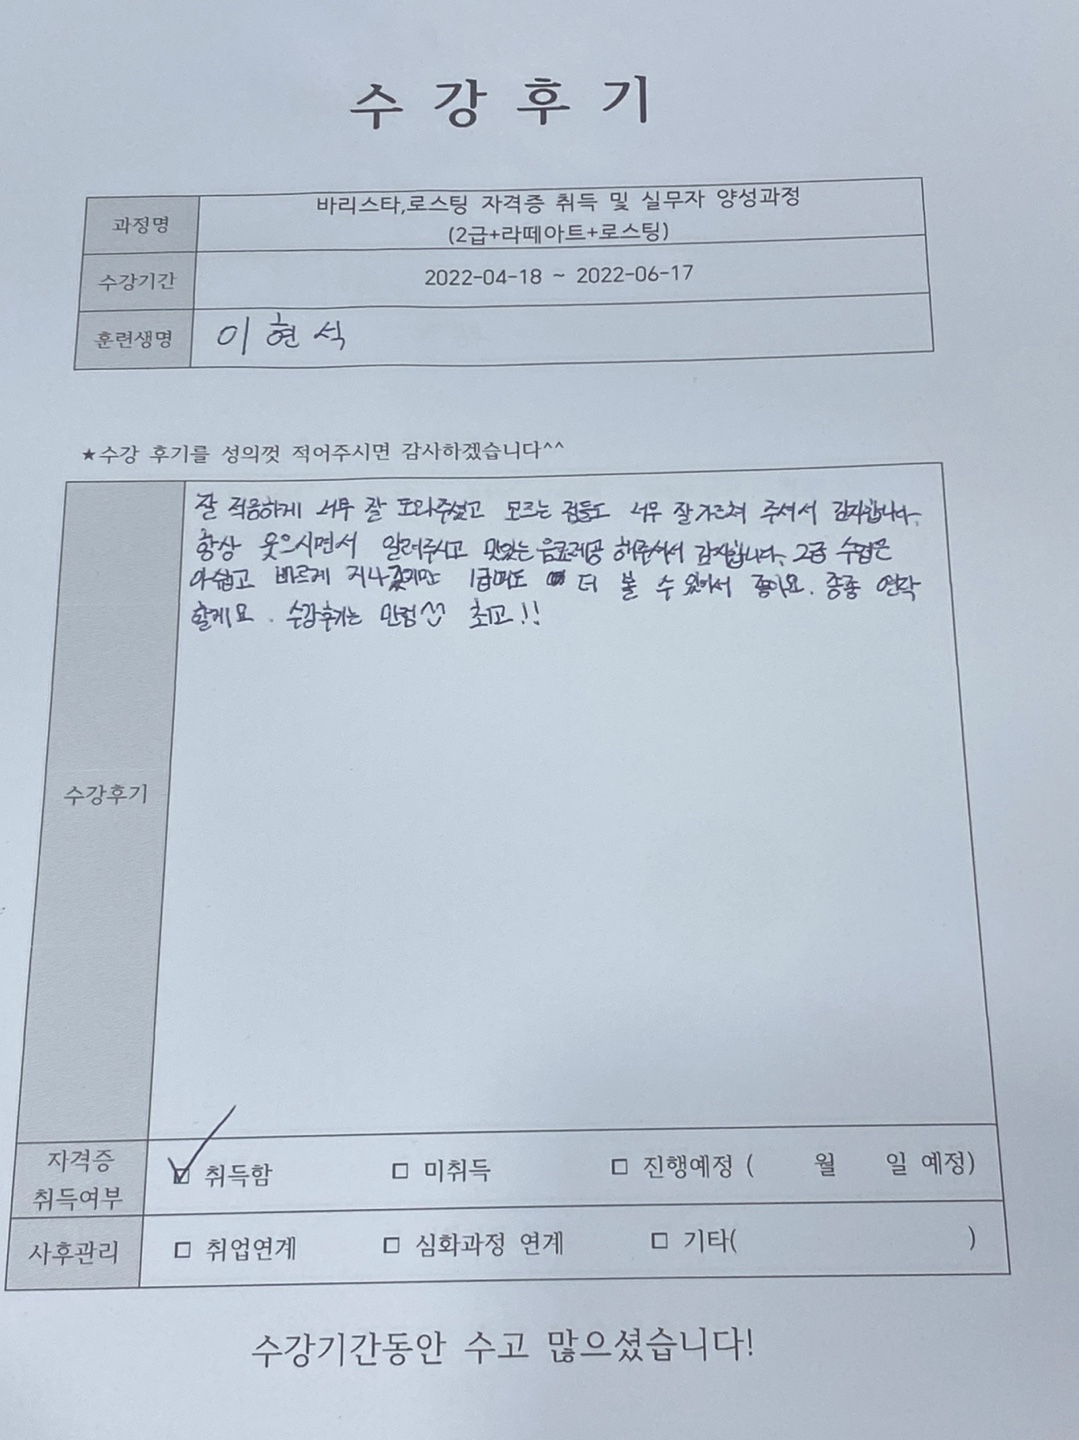 수강후기
과정명
바리스타,로스팅 자격증 취득 및 실무자 양성과정
(2급+라떼아트+로스팅)
수강기간
2022-04-18 ~ 2022-06-17
훈련생명
이현석
★수강 후기를 성의껏 적어주시면 감사하겠습니다^^
잘 적응하게 너무 잘 도와주셨고 모르는 점들도 너무 잘가르쳐 주셔서 감사합니다.
항상 웃으시면서 알려주시고 맛있는 음료제공 해주셔서 감사합니다. 2급 수업은
아쉽고 빠르게 지나갔지만 1급때도 더 볼 수 있어서 좋아요. 종종 연락
할게요. 수강후기는 만점 최고!!
수강후기
자격증
취득여부
☑ 취득함 □ 미취득 □ 진행예정 ( 월 일 예정)
사후관리
□ 취업연계 □ 심화과정 연계 □ 기타( )
수강기간동안 수고 많으셨습니다!